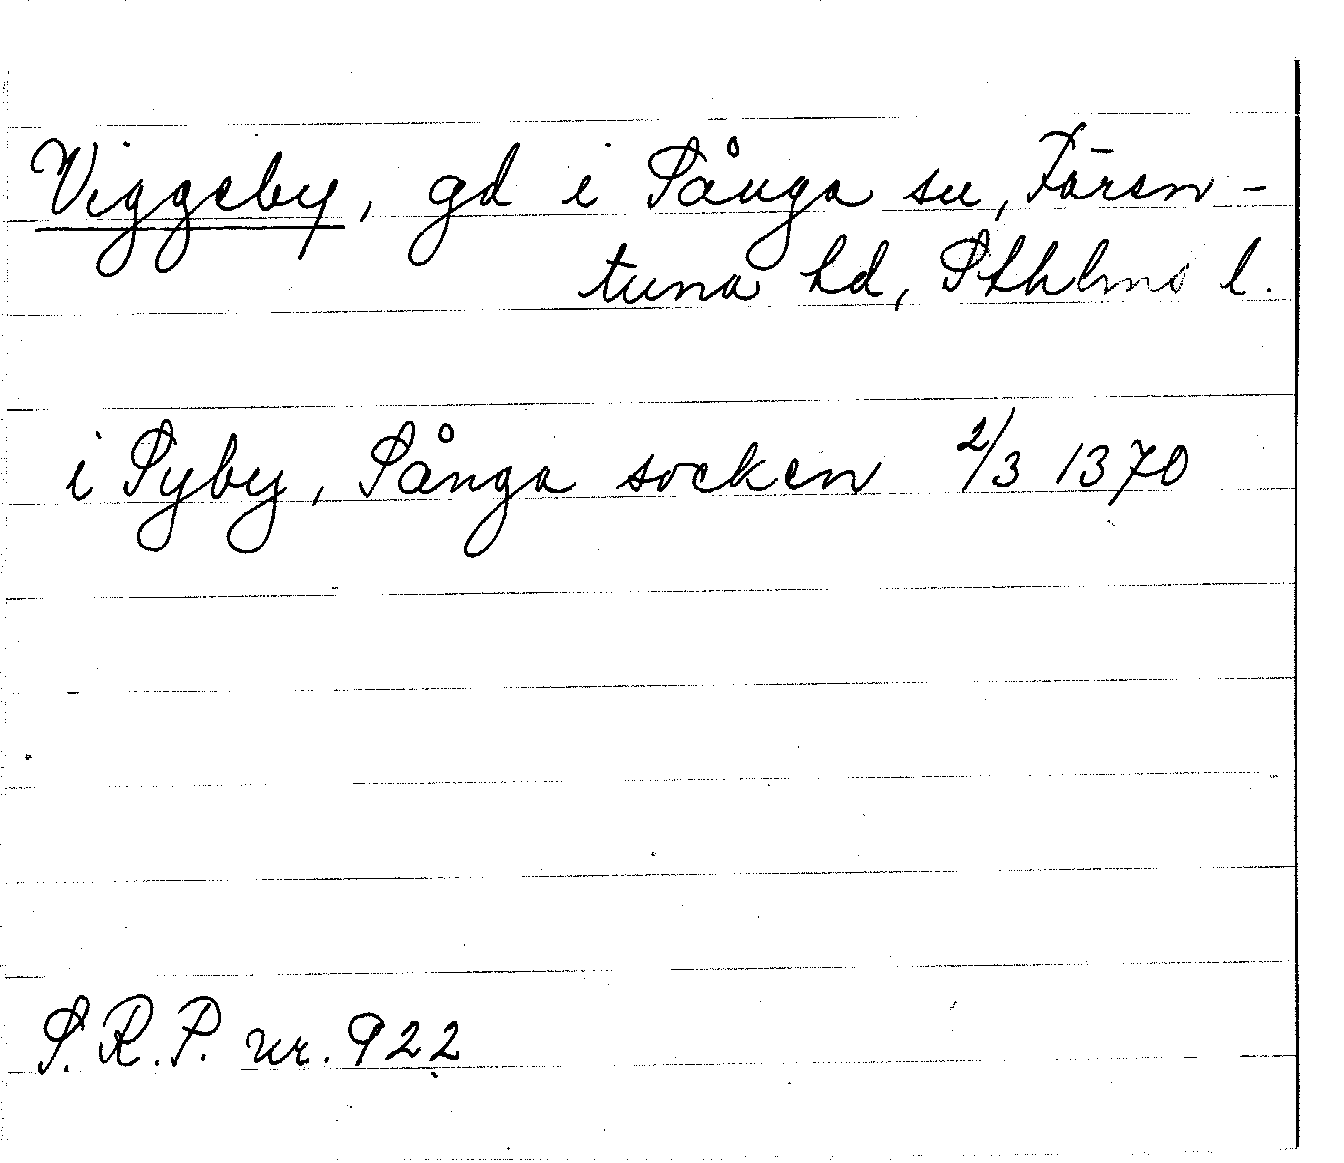 Viggeby, gd i Sånga sn, Fären-
tuna hd, Sthlms l.
i Syby, Sånga socken 2/3 1370
S.R.P. nr. 922